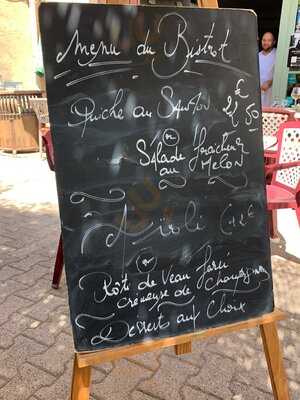 Menu du Bistrot
Quiche au Saumon 22€50
ou
Salade fraicheur
au Melon
Aïoli
Rôti de Veau Farci
crémeuse de Champignons
Dessert au Choix